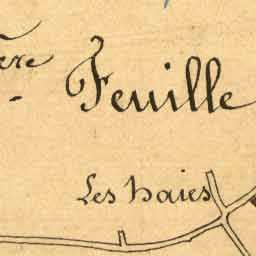 ère
Feuille
Les haies